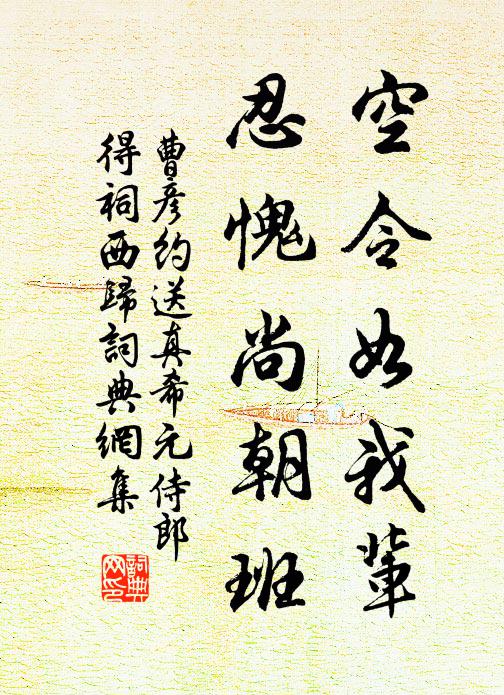 空令如我輩
忍愧尚朝班
曹彥約送真希元侍郎
得祠西歸詞典網集
詞典网印